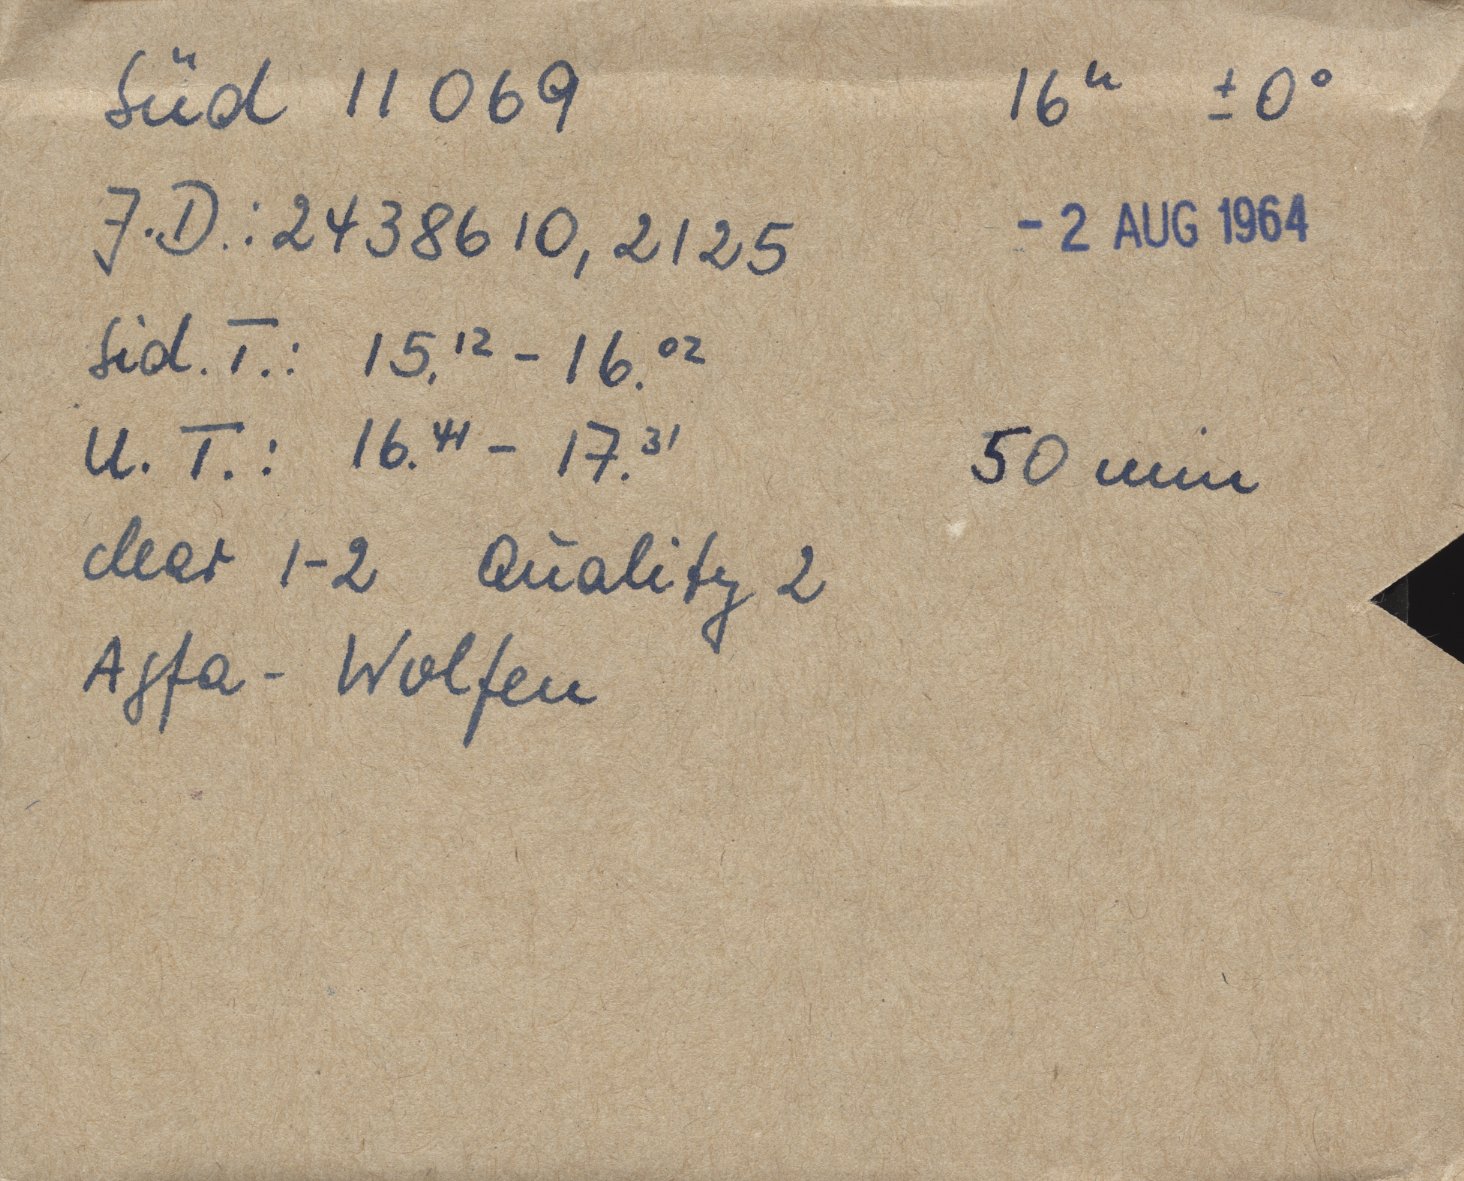 Süd 11069 16ʰ ±0°
J.D.: 2438610,2125 - 2 AUG 1964
Sid. T.: 15.12 - 16.02
U. T.: 16.41 - 17.31 50 min
clear 1-2 Quality 2
Agfa - Wolfen